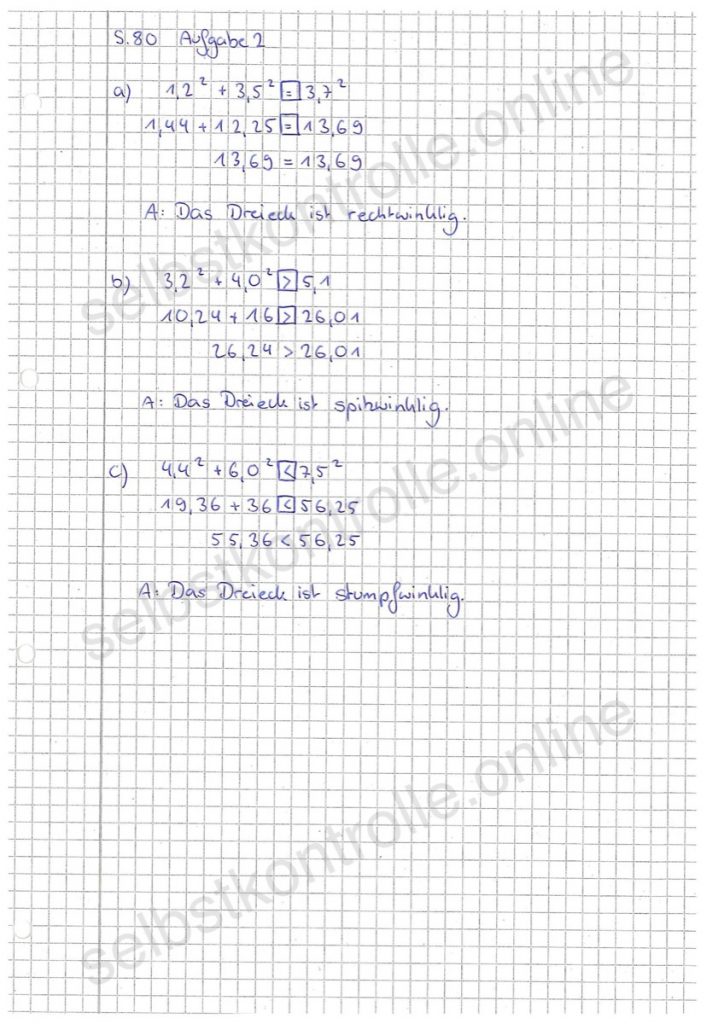 S.80 Aufgabe 2
a) 1,2² + 3,5² = 3,7²
1,44 + 12,25 = 13,69
13,69 = 13,69
A: Das Dreieck ist rechtwinklig.
b) 3,2² + 4,0² > 5,1
10,24 + 16 > 26,01
26,24 > 26,01
A: Das Dreieck ist spitzwinklig.
c) 4,4² + 6,0² < 7,5²
19,36 + 36 < 56,25
55,36 < 56,25
A: Das Dreieck ist stumpfwinklig.
selbstkontrolle.online
selbstkontrolle.online
selbstkontrolle.online